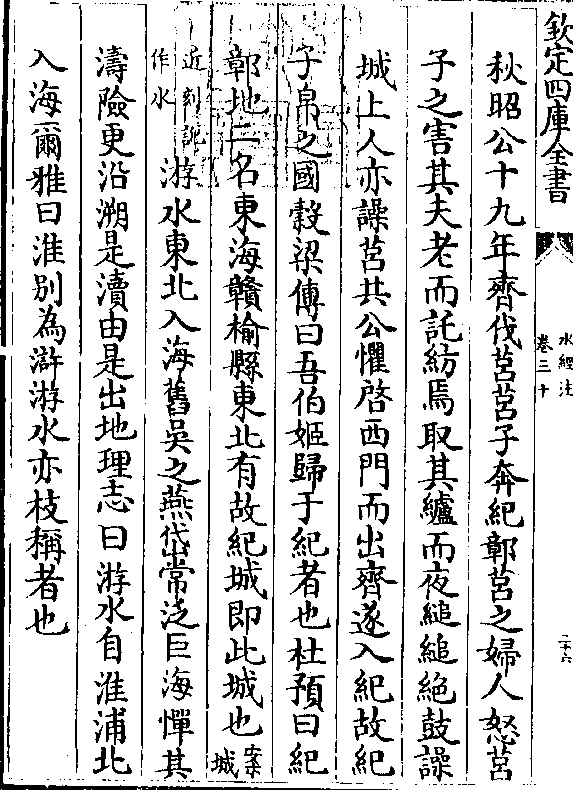 欽定四庫全書
水經注
卷三十
二十六
秋昭公十九年齊伐莒莒子奔紀鄣莒之婦人怒莒
子之害其夫老而託紡焉取其纑而夜縋縋絶鼓譟
城上人亦譟莒共公懼啓西門而出齊遂入紀故紀
子帛之國穀梁傳曰吾伯姬歸于紀者也杜預曰紀
鄣地二名東海贛榆縣東北有故紀城即此城也案城
近刻訛作水游水東北入海舊吳之燕岱常泛巨海憚其
濤險更沿溯是瀆由是出地理志曰游水自淮浦北
入海爾雅曰淮别為滸游水亦枝稱者也